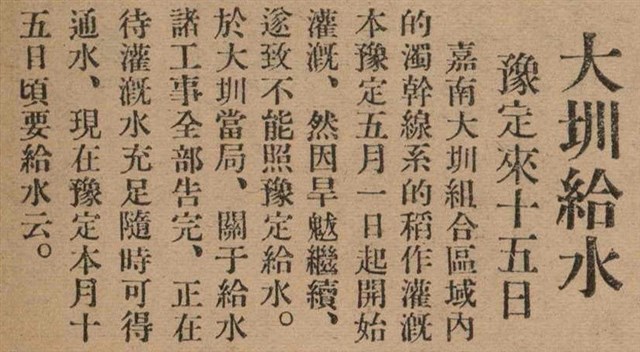 大圳給水
豫定來十五日
嘉南大圳組合區域內
的濁幹線系的稻作灌漑
本豫定五月一日起開始
灌漑、然因旱魃繼續、
遂致不能照豫定給水。
於大圳當局、關于給水
諸工事全部告完、正在
待灌漑水充足隨時可得
通水、現在豫定本月十
五日頃要給水云。